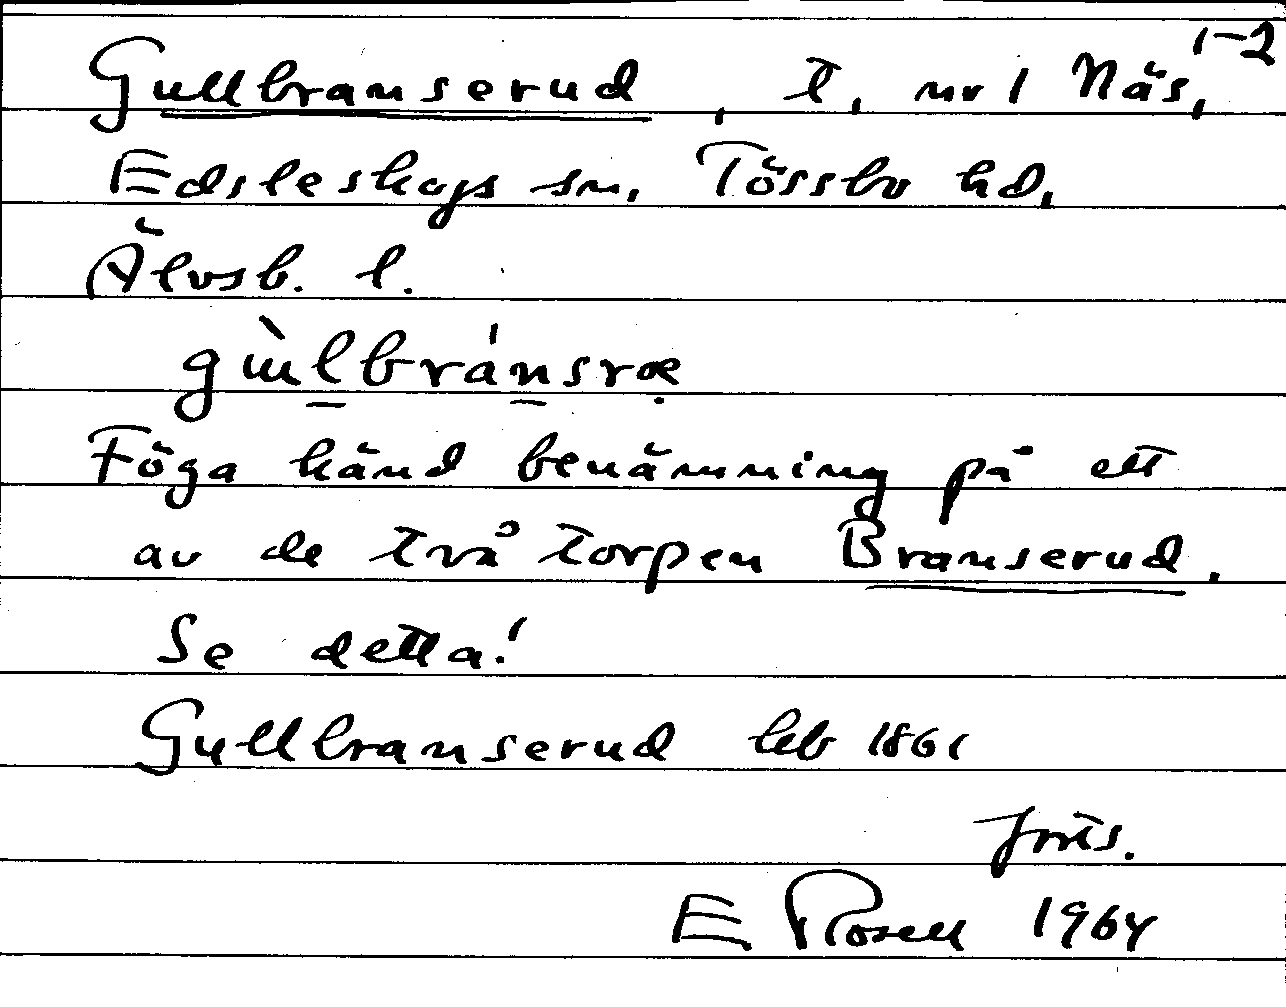 Gullbranserud, t, nr 1 Näs, 1-2
Edsleskogs sn, Tössbo hd,
Älvsb. l.
gu̇̀lbránsrœ
Föga känd benämning på ett
av de två torpen Branserud.
Se detta!
Gullbranserud lkb 1861
forts.
E Rosell 1964